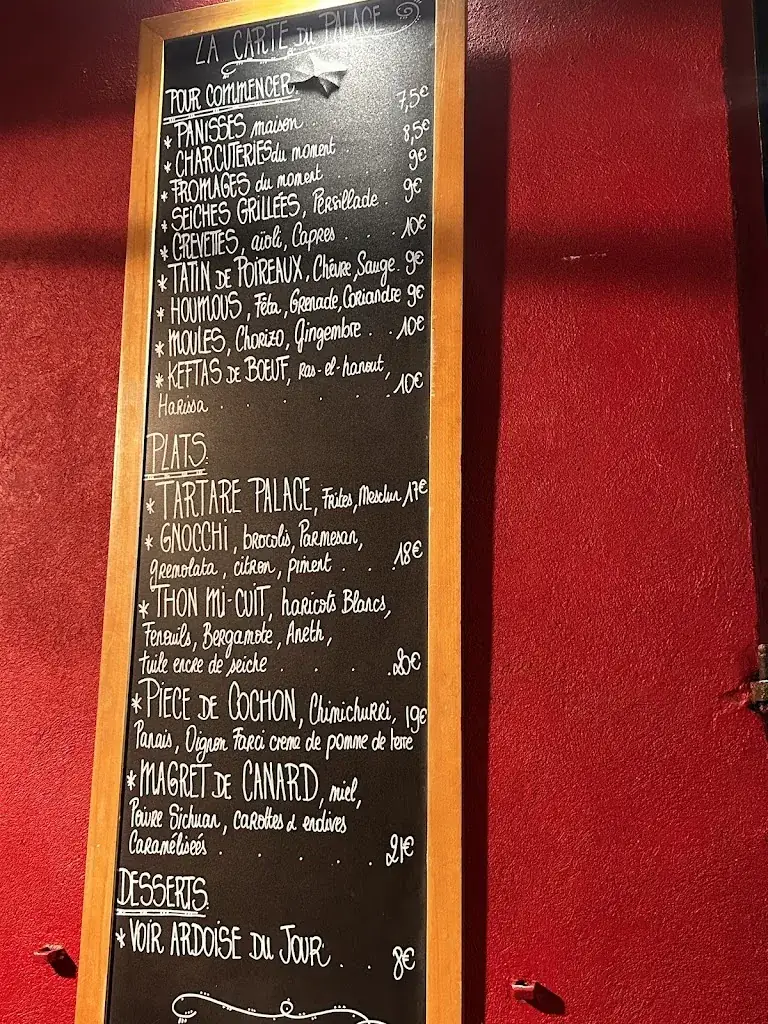 LA CARTE DU PALACE
POUR COMMENCER.
* PANISSES maison 7,5€
* CHARCUTERIES du moment 8,5€
* FROMAGES du moment . 9€
* SEICHES GRILLÉES, Persillade . 9€
* CREVETTES, aïoli, Capres . . . 10€
* TATIN DE POIREAUX, Chèvre, Sauge. 9€
* HOUMOUS, Féta, Grenade, Coriandre 9€
* MOULES, Chorizo, Gingembre . . 10€
* KEFTAS DE BOEUF, ras-el-hanout,
Harissa . . . . . . 10€
PLATS.
* TARTARE PALACE, Frites, Mesclun 17€
* GNOCCHI, brocolis, Parmesan,
gremolata, citron, piment . . . 18€
* THON MI-CUIT, haricots Blancs,
Fenouils, Bergamote, Aneth,
tuile encre de seiche . . . . . 20€
* PIECE DE COCHON, Chimichurri, 19€
Panais, Oignon Farci creme de pomme de terre
* MAGRET DE CANARD, miel,
Poivre Sichuan, carottes & endives
Caraméliseés . . . . . 21€
DESSERTS.
* VOIR ARDOISE DU JOUR . . . 8€